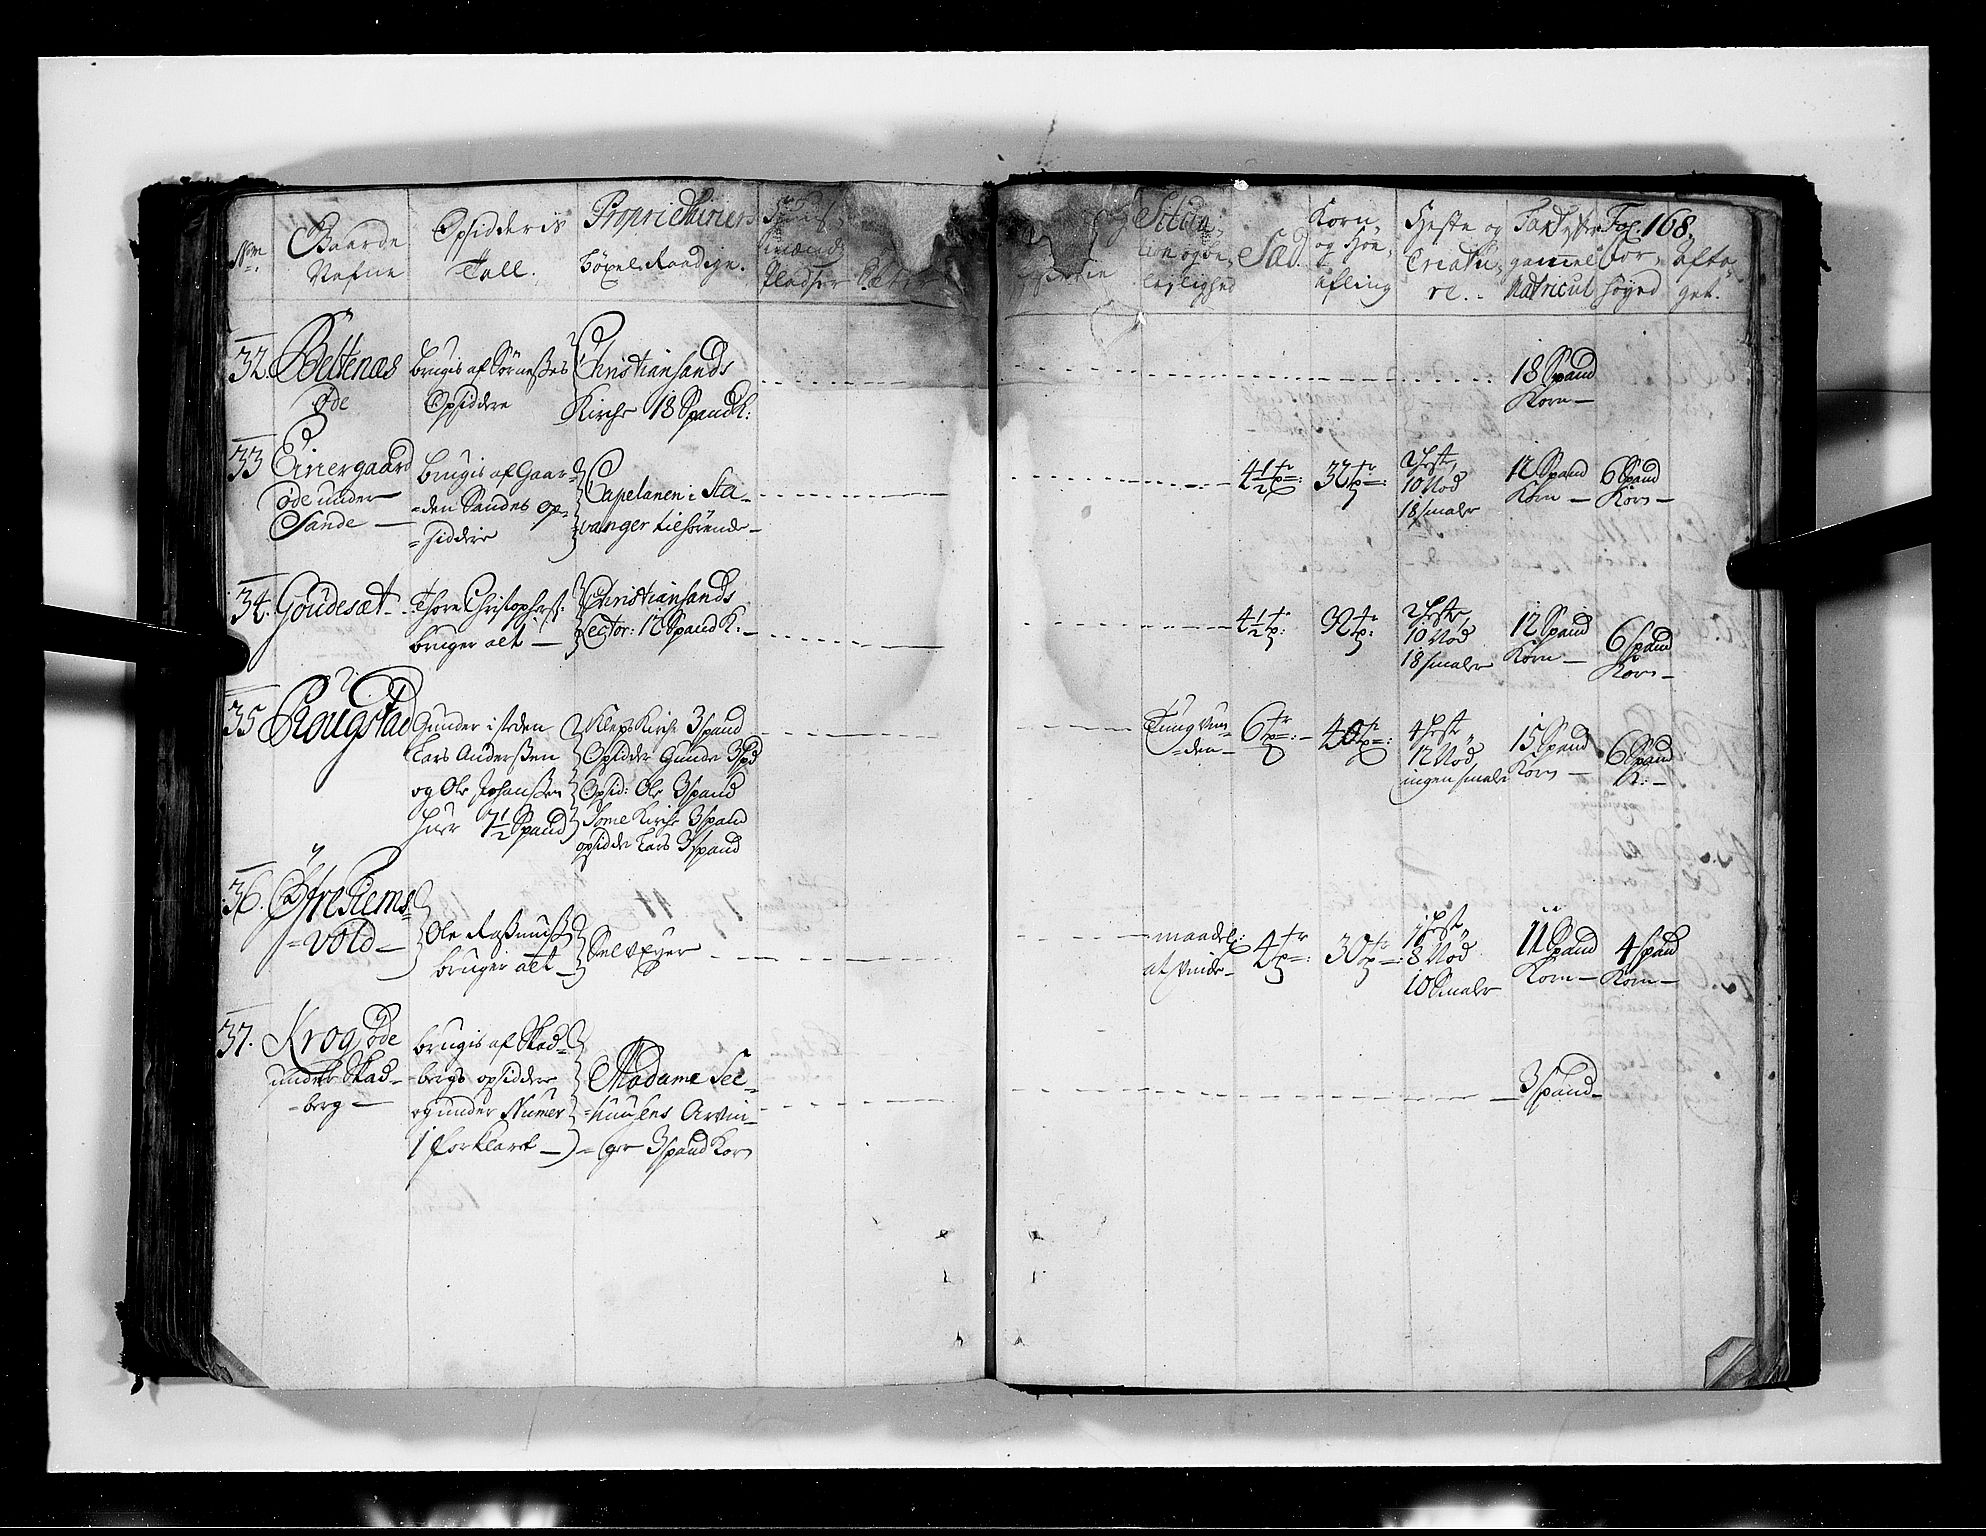 Num
Gaarde
Nafne
Opsidderis
Tall.
Proprietairiers
böxel Raadige.
Huus-
mænd
Pladser
Situa-
tion og be-
leylighed
Sæd
Korn-
og Höe-
afling
Heste og
Creatu-
re.
Taxt efter
gamel
Matricul
For-
höyed
Fol. 168.
Afta-
get.
32. Beltenæs
öde
brugis af Sörnesses
Opsiddere
Christiansands
Kirche 18 Spand K:
18 Spand
Korn
33 Einergaard
öde under
Sande
brugis af Gaar-
den Sandes Op-
siddere
Capelanen i Sta-
vanger tilhörende
4½ tr:
32 tr:
2 Hest,
10 Nöd
18 smaler
12 Spand
Korn
6 Spand
Korn
34. Goudesæt
Thore Christophers:
bruger alt
Christiansands
Lector: 12 Spand K:
4½ tr:
32 tr:
2 Hest,
10 Nöd
18 smaler
12 Spand
Korn
6 Spand
Korn
35 Rougstad
Gunder i steden
Lars Anderssen
og Ole Johanssen
huer 7½ Spand
Kleps Kirche 3 spand
Opsidder Gunde 3 spd
Opsid: Ole 3 spand
Some Kirche 3 spand
opsidde Lars 3 spand
Tung vun-
den
6 tr:
40 tr:
4 Hest
12 Nöd
ingen smaler
15 Spand
Korn
6 Spand
K:
36. Öfrehems-
vold
Ole Rasmuss:
bruger alt
Selv Eyer
maadel:
at vinde
4 tr:
30 tr:
1 Hest
8 Nöd
10 Smaler
11 Spand
Korn
4 spand
Korn
37. Krog öde
under Skad-
berg
brugis af Skad-
bergs opsiddere
og under Numer
1 forklaret
Madame See-
huusens Arvin-
ger 3 spand Korn
3 spand